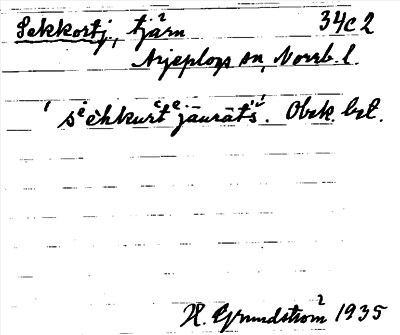 Sekkortj, tjärn 34c2
Arjeplogs sn, Norrb. l.
Obek. bet.
H. Grundström 1935